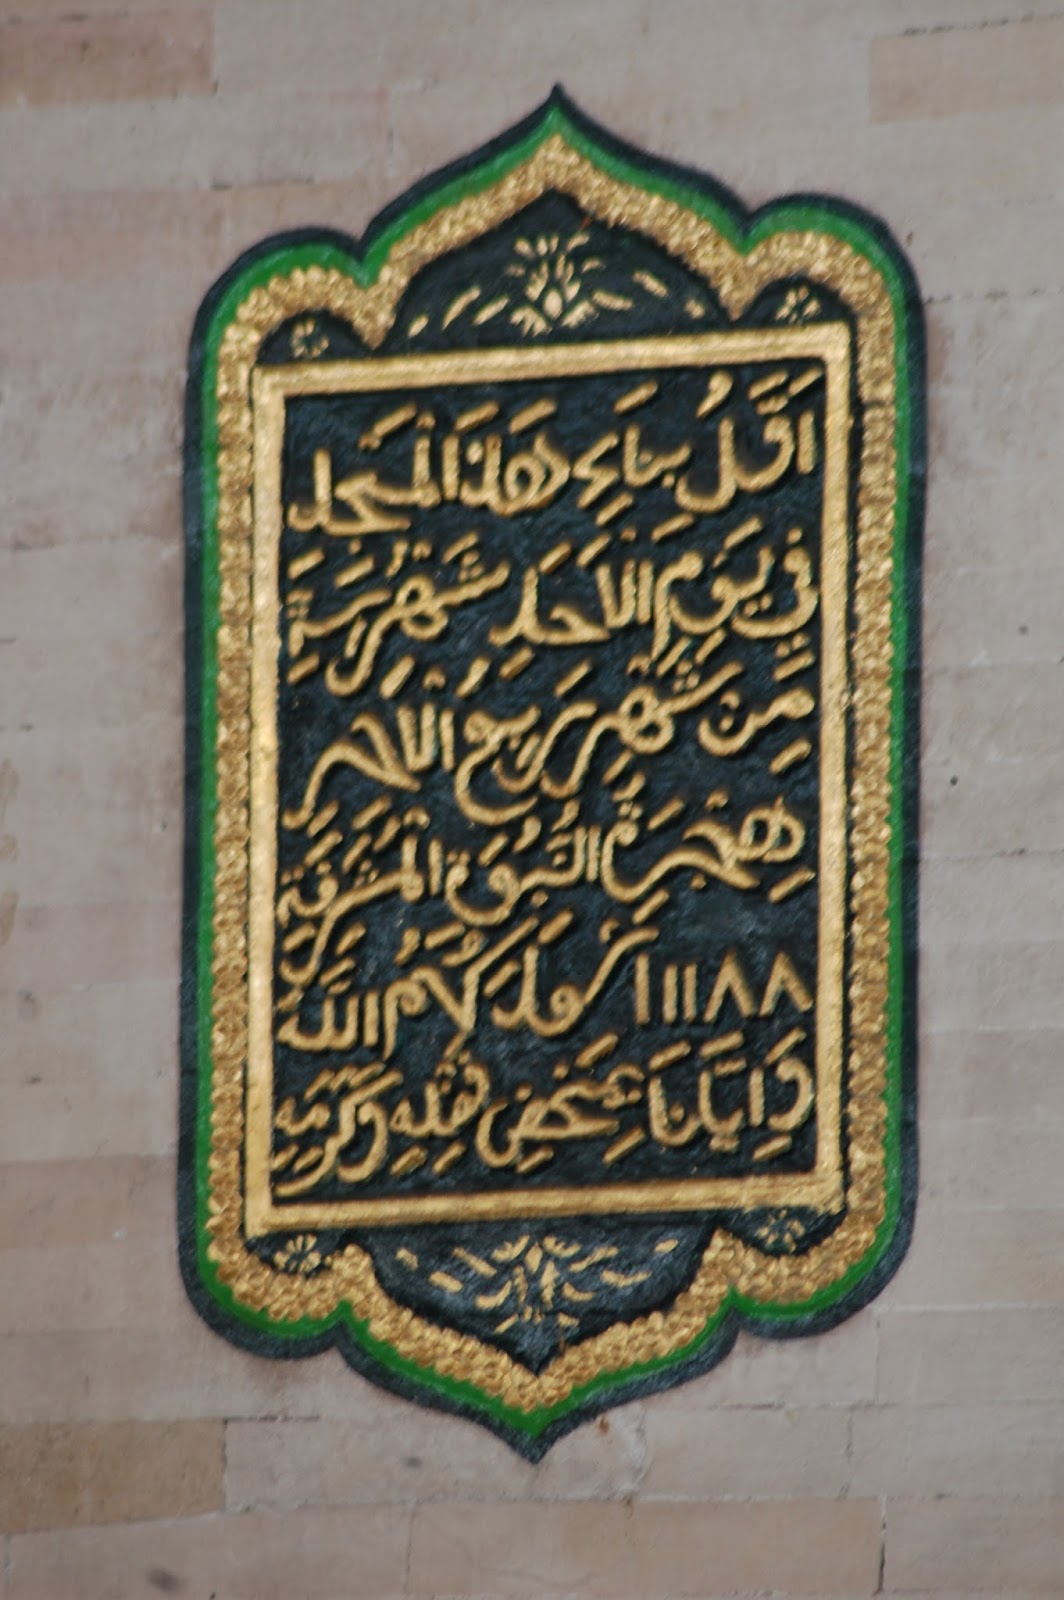 اَوَّلُ بِنَاءِ هَذَا الْمَسْجِدِ
فِي يَوْمِ الْاَحَدِ شَهْرُ سِتَّةٍ
مِنْ شَهْرِ رَبِيْعُ الْاَخِرِ
هِجْرَةُ النُّبُوَّةِ الْمُشَرَّفَةِ
١١١٨٨ اللّٰه
وَاِيَّانَا بِمَحْضِ وَكَرَمِهِ